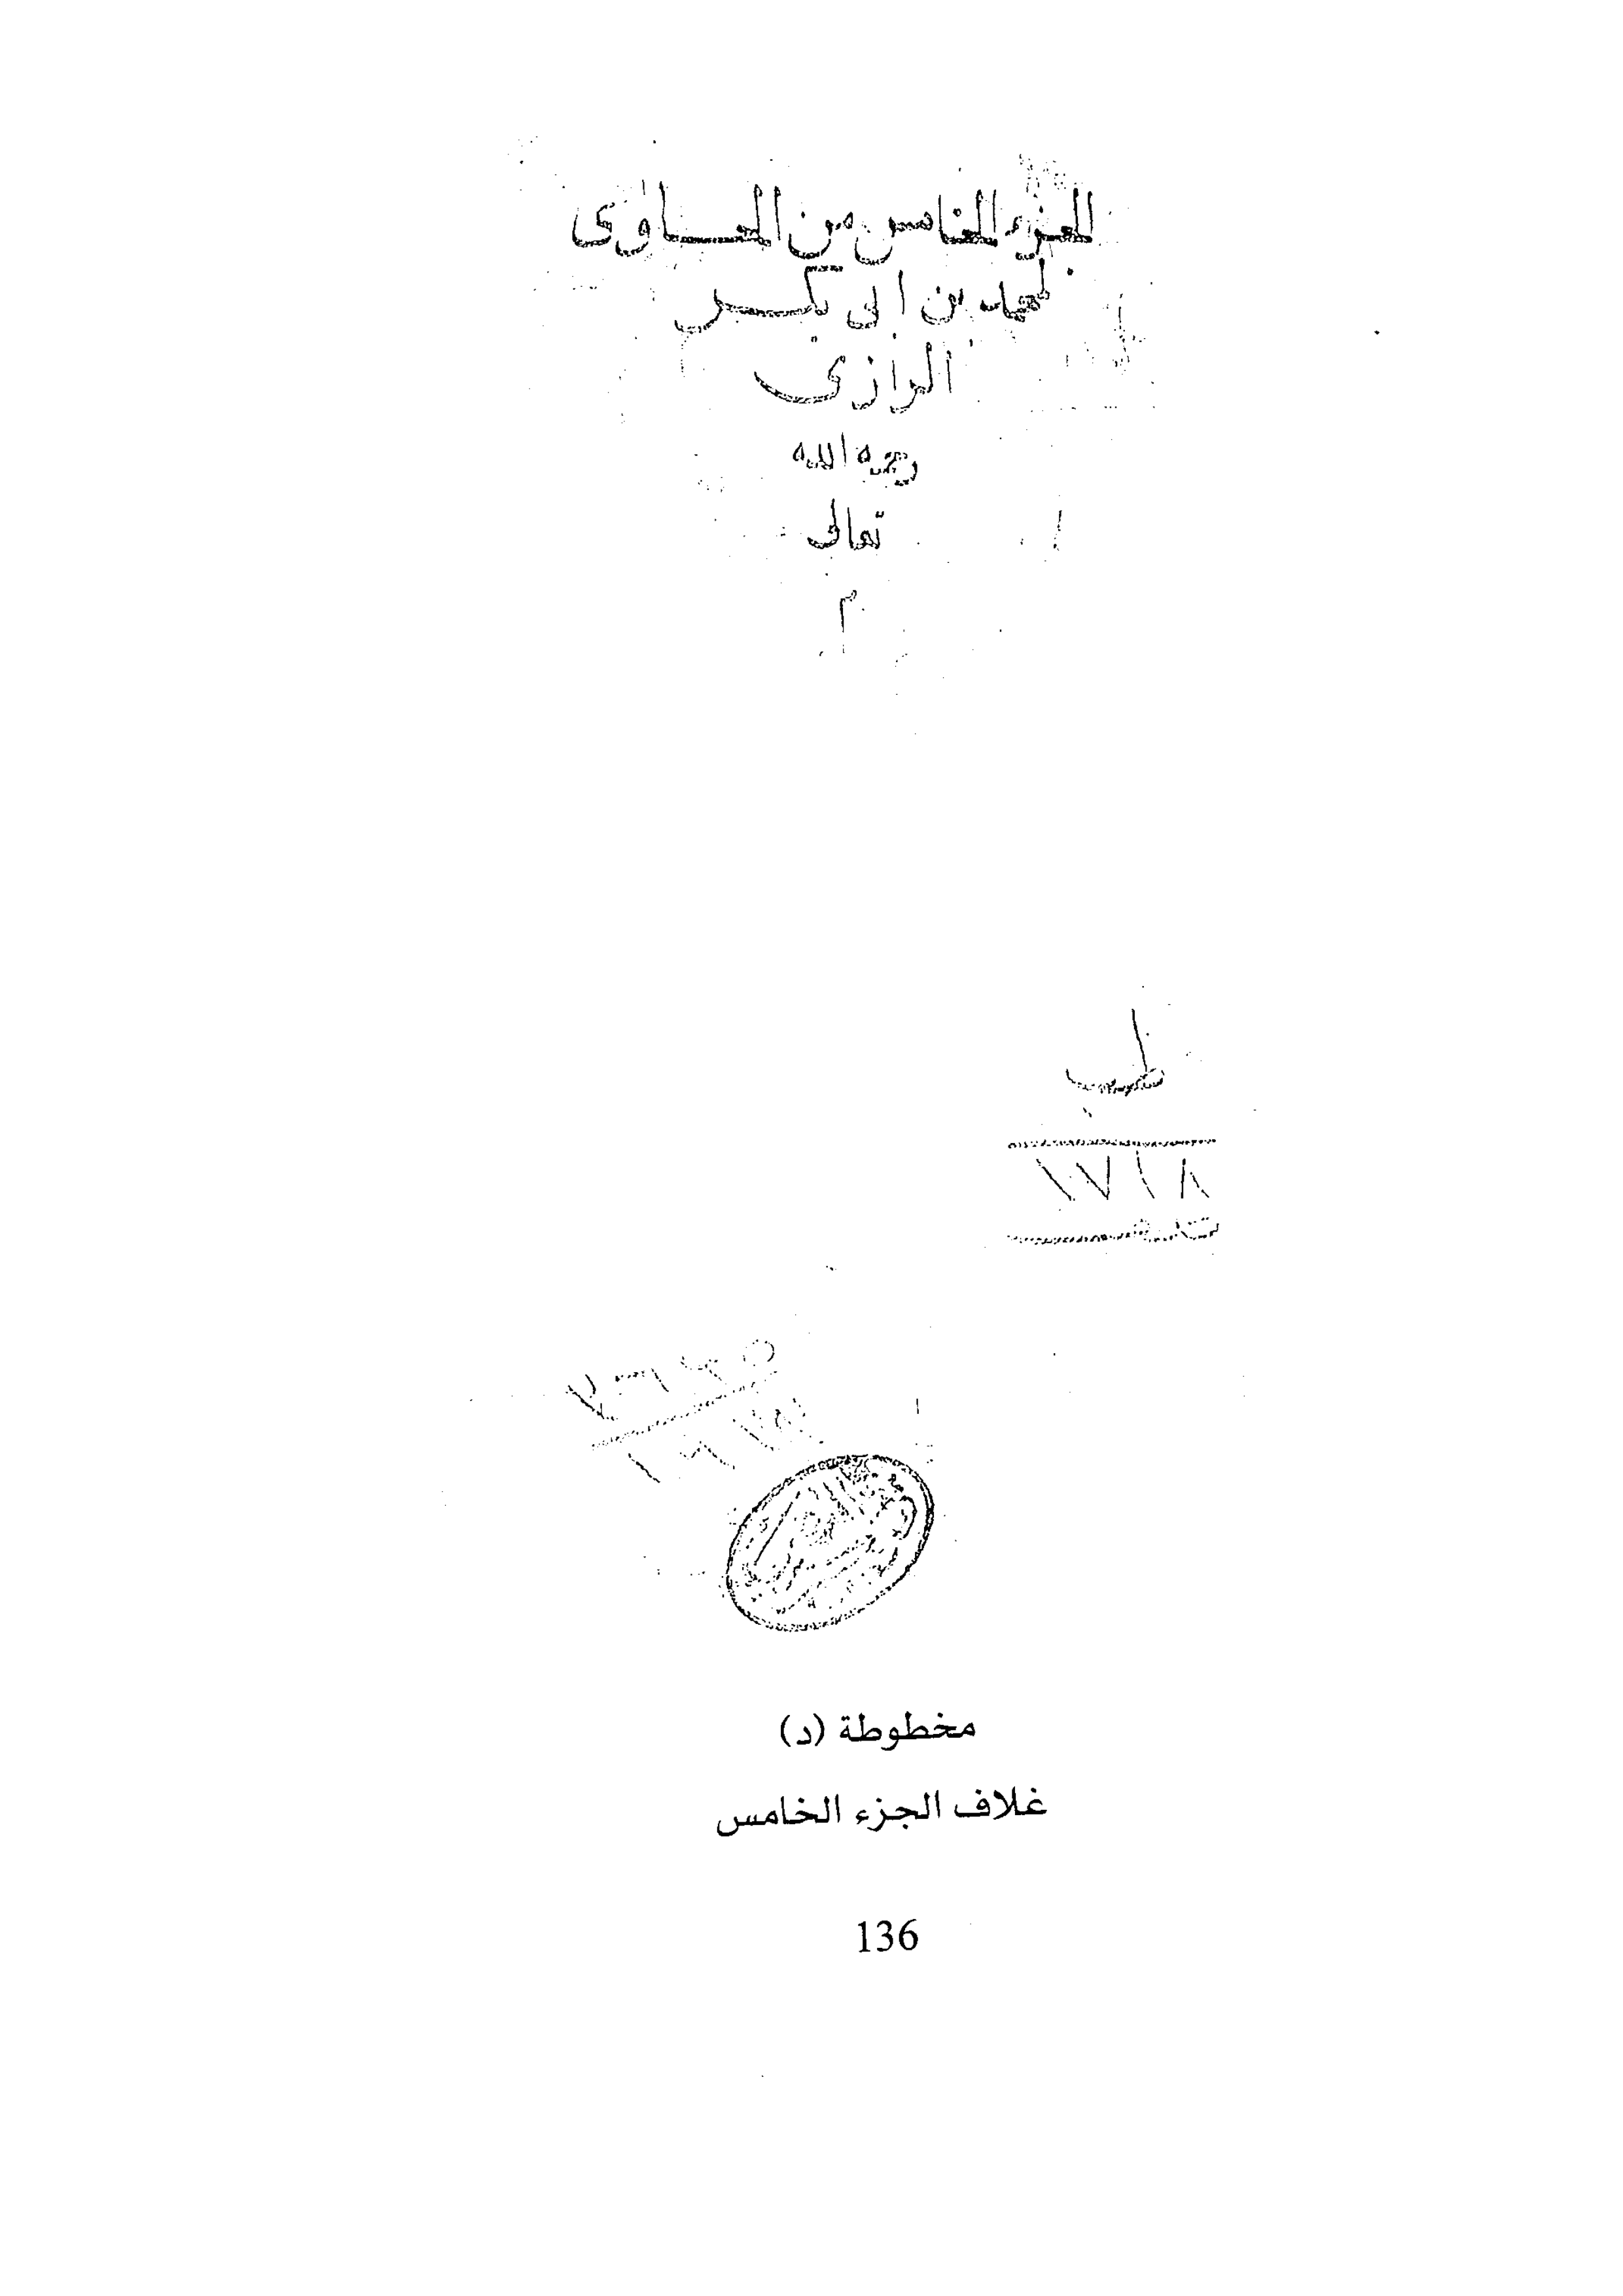 الجزء الخامس من الحاوى
لمحمد بن ابى بكر
الرازى
رحمه الله
تعالى
م
طب
١٧١٨
مخطوطة (د)
غلاف الجزء الخامس
136